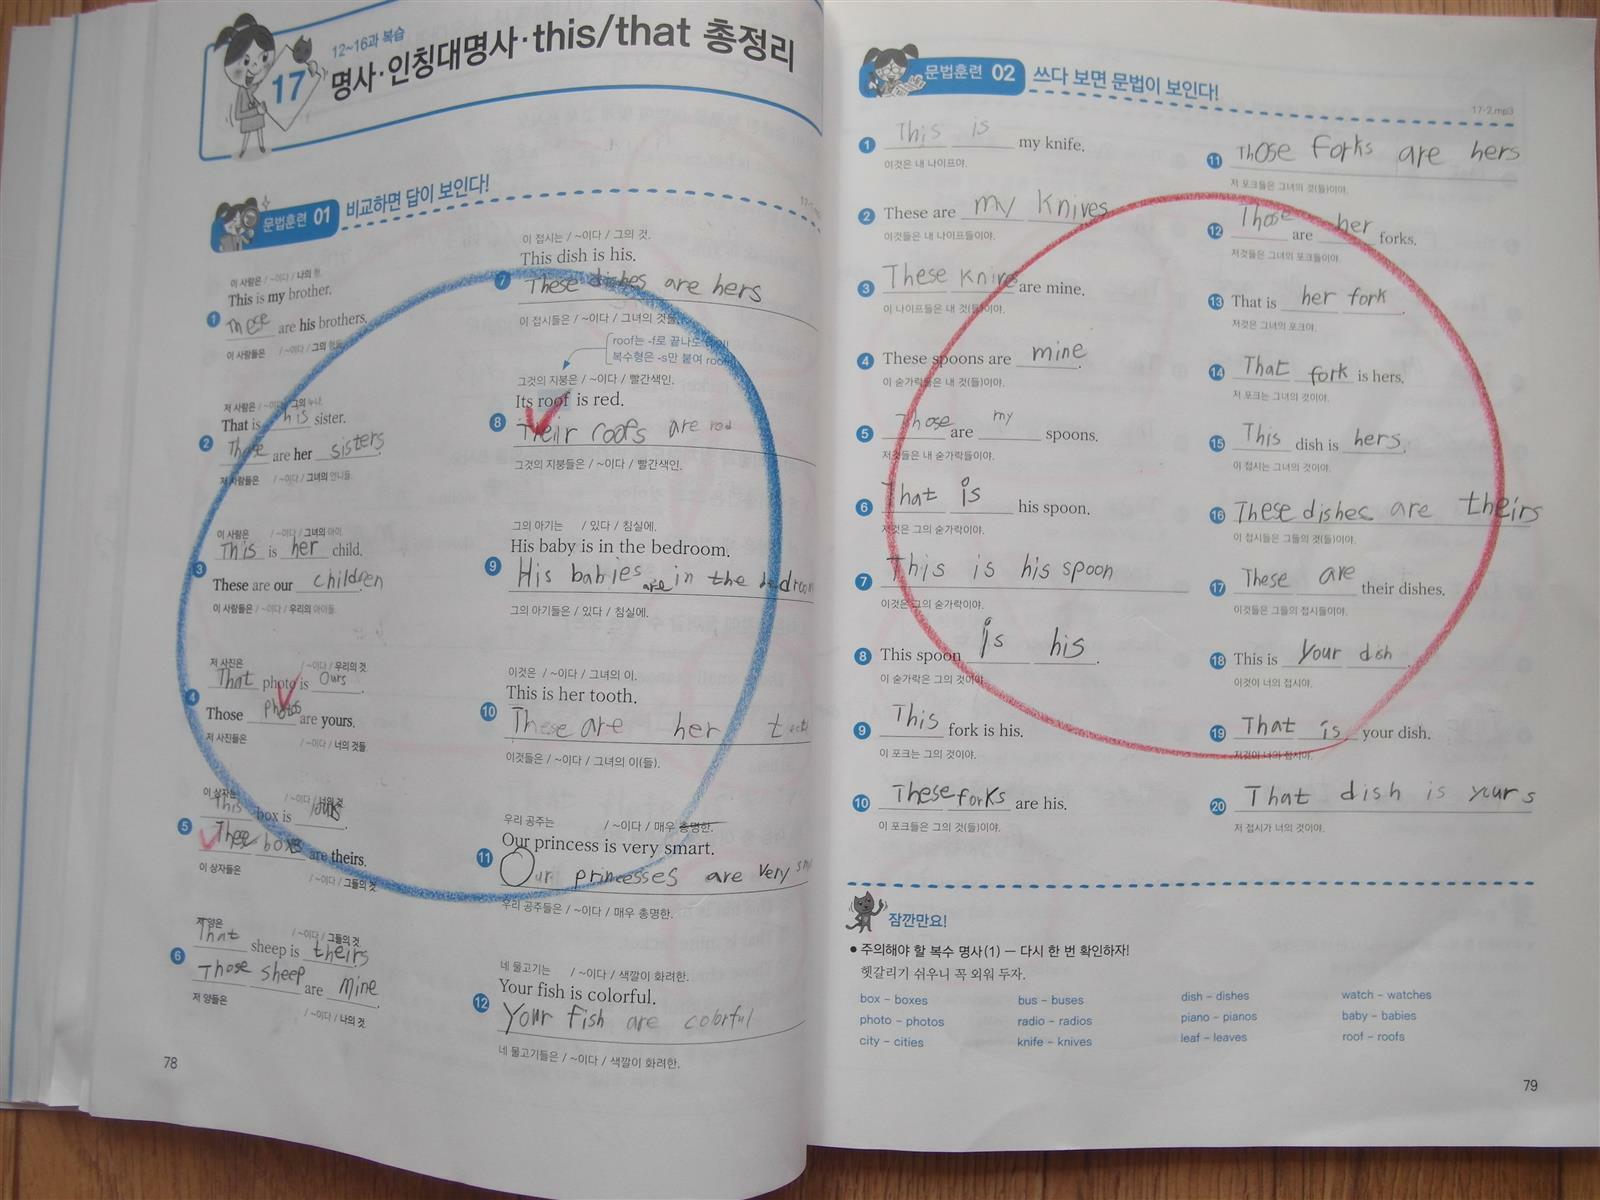 12~16과 복습
17 명사·인칭대명사·this/that 총정리
문법훈련 01 비교하면 답이 보인다!
이 사람은 / ~이다 / 나의 형.
This is my brother.
1 These are his brothers.
이 사람들은 / ~이다 / 그의 형들.
저 사람은 / ~이다 / 그의 누나.
That is his sister.
2 Those are her sisters.
저 사람들은 / ~이다 / 그녀의 언니들.
이 사람은 / ~이다 / 그녀의 아이.
3 This is her child.
These are our children
이 사람들은 / ~이다 / 우리의 아이들.
저 사진은 / ~이다 / 우리의 것.
4 That photo is ours.
Those photos are yours.
저 사진들은 / ~이다 / 너의 것들.
이 상자는 / ~이다 / 너의 것.
5 This box is yours.
These boxes are theirs.
이 상자들은 / ~이다 / 그들의 것.
저 양은 / ~이다 / 그들의 것.
6 That sheep is theirs.
Those sheep are mine.
저 양들은 / ~이다 / 나의 것.
78
이 접시는 / ~이다 / 그의 것.
This dish is his.
7 These dishes are hers
이 접시들은 / ~이다 / 그녀의 것들.
roof는 -f로 끝나도
복수형은 -s만 붙여
그것의 지붕은 / ~이다 / 빨간색인.
Its roof is red.
8 Their roofs are red
그것의 지붕들은 / ~이다 / 빨간색인.
그의 아기는 / 있다 / 침실에.
His baby is in the bedroom.
9 His babies are in the bedroom
그의 아기들은 / 있다 / 침실에.
이것은 / ~이다 / 그녀의 이.
This is her tooth.
10 These are her
이것들은 / ~이다 / 그녀의 이(들).
우리 공주는 / ~이다 / 매우 총명한.
Our princess is very smart.
11 Our princesses are very
우리 공주들은 / ~이다 / 매우 총명한.
네 물고기는 / ~이다 / 색깔이 화려한.
Your fish is colorful.
12 Your fish are colorful
네 물고기들은 / ~이다 / 색깔이 화려한.
문법훈련 02 쓰다 보면 문법이 보인다!
17-2.mp3
1 This is my knife.
이것은 내 나이프야.
2 These are my knives
이것들은 내 나이프들이야.
3 These knives are mine.
이 나이프들은 내 것(들)이야.
4 These spoons are mine.
이 숟가락들은 내 것(들)이야.
5 Those are my spoons.
저것들은 내 숟가락들이야.
6 That is his spoon.
저것은 그의 숟가락이야.
7 This is his spoon
이것은 그의 숟가락이야.
8 This spoon is his.
이 숟가락은 그의 것이야.
9 This fork is his.
이 포크는 그의 것이야.
10 These forks are his.
이 포크들은 그의 것(들)이야.
11 Those forks are hers
저 포크들은 그녀의 것(들)이야.
12 Those are her forks.
저것들은 그녀의 포크들이야.
13 That is her fork.
저것은 그녀의 포크야.
14 That fork is hers.
저 포크는 그녀의 것이야.
15 This dish is hers.
이 접시는 그녀의 것이야.
16 These dishes are theirs
이 접시들은 그들의 것(들)이야.
17 These are their dishes.
이것들은 그들의 접시들이야.
18 This is your dish.
이것이 너의 접시야.
19 That is your dish.
저것이 너의 접시야.
20 That dish is yours
저 접시가 너의 것이야.
잠깐만요!
● 주의해야 할 복수 명사(1) – 다시 한 번 확인하자!
헷갈리기 쉬우니 꼭 외워 두자.
box – boxes bus – buses dish – dishes watch – watches
photo – photos radio – radios piano – pianos baby – babies
city – cities knife – knives leaf – leaves roof – roofs
79